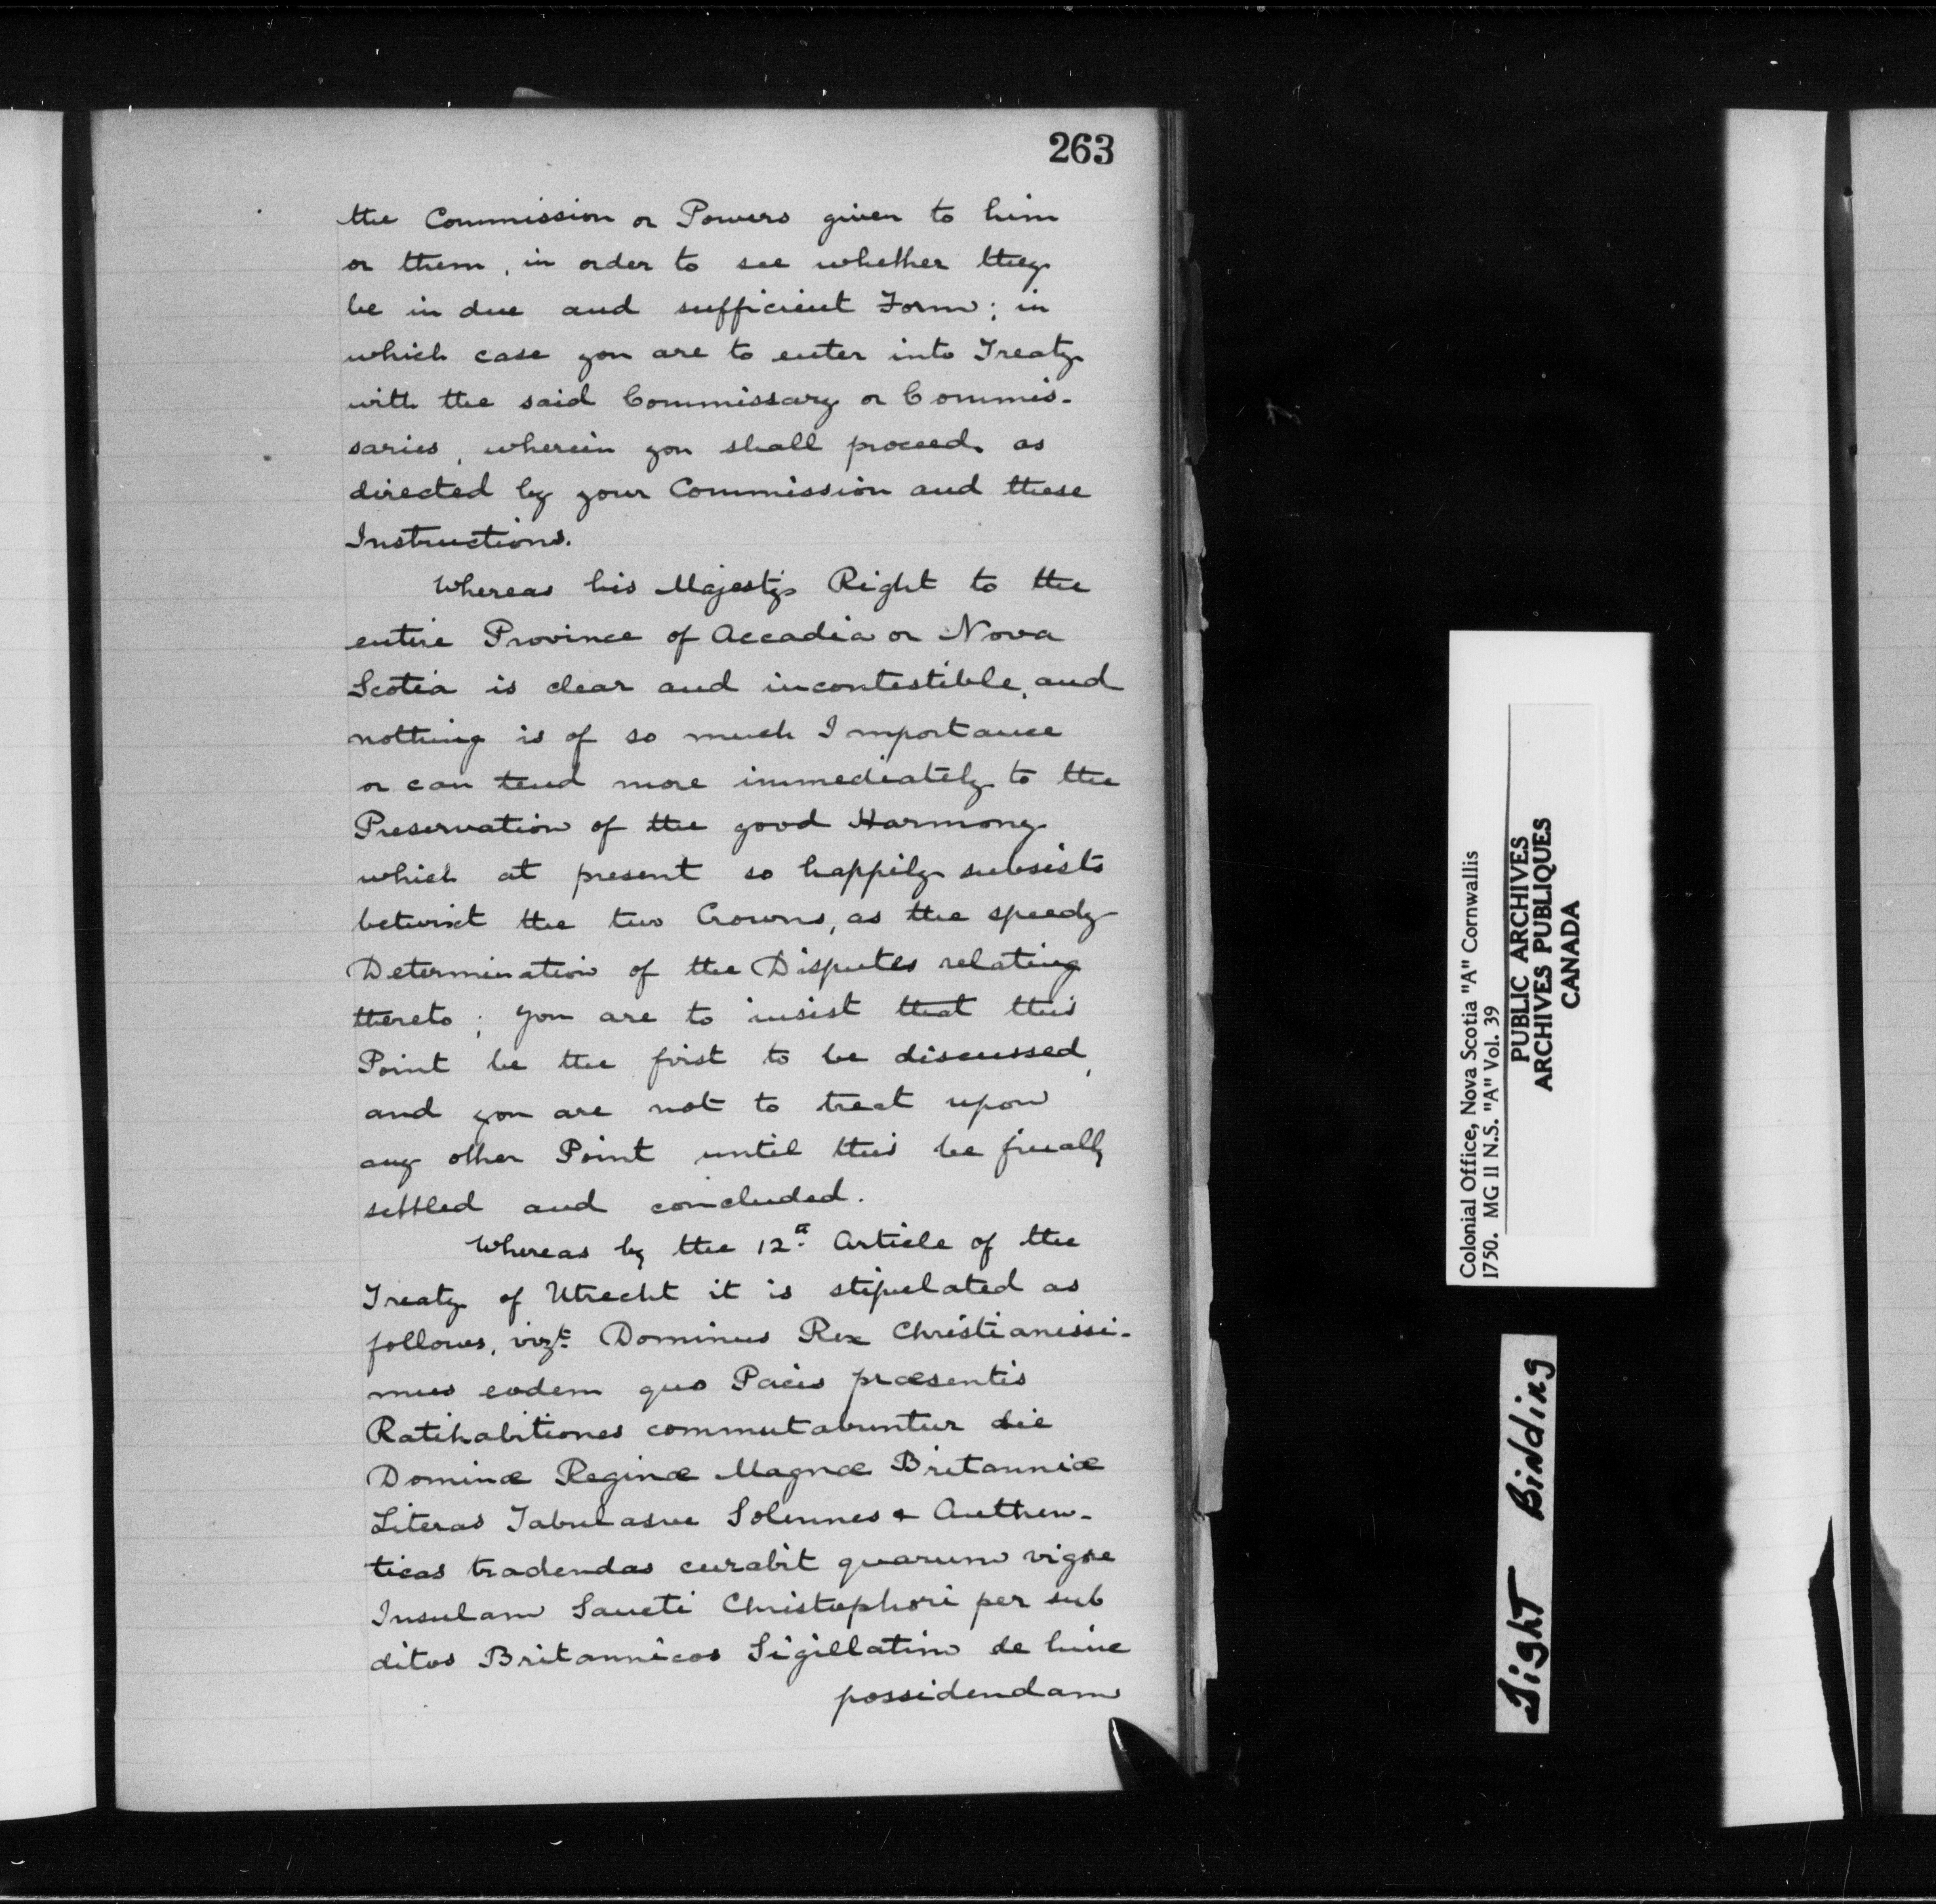 263
the Commission or Powers given to him
or them, in order to see whether they
be in due and sufficient Form; in
which case you are to enter into Treaty
with the said Commissary or Commis-
saries, wherein you shall proceed as
directed by your Commission and these
Instructions.
Whereas his Majesty's Right to the
entire Province of Accadia or Nova
Scotia is clear and incontestible, and
nothing is of so much Importance
or can tend more immediately to the
Preservation of the good Harmony
which at present so happily subsists
betwixt the two Crowns, as the speedy
Determination of the Disputes relating
thereto; you are to insist that this
Point be the first to be discussed,
and you are not to treat upon
any other Point until this be finally
settled and concluded.
Whereas by the 12.a Article of the
Treaty of Utrecht it is stipulated as
follows, vizt. Dominus Rex Christianissi-
mus eodem quo Pacis præsentis
Ratihabitiones commutabuntur die
Dominæ Reginæ Magnæ Britanniæ
Literas Tabulasve Solennes & Authen-
ticas tradendas curabit quarum vigore
Insulam Sancti Christophori per sub
ditos Britannicos Sigillatim de hinc
possidendam
Colonial Office, Nova Scotia "A" Cornwallis
1750. MG 11 N.S. "A" Vol. 39
PUBLIC ARCHIVES
ARCHIVES PUBLIQUES
CANADA
Tight Binding